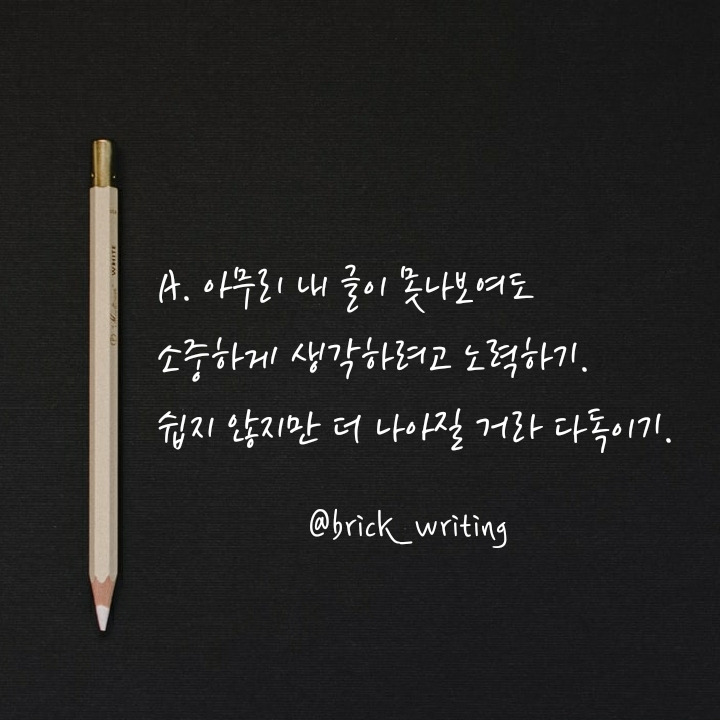 WHITE
A. 아무리 내 글이 못나보여도
소중하게 생각하려고 노력하기.
쉽지 않지만 더 나아질 거라 다독이기.
@brick_writing